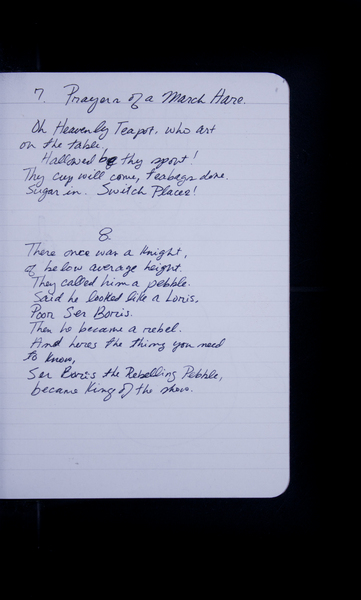 7. Prayers of a March Hare.
Oh Heavenly Teapot, who art
on the table,
Hallowed be thy spout!
Thy cup will come, teabags done.
Sugar in. Switch Places!
8.
There once was a Knight,
of below average height.
They called him a pebble.
Said he looked like a Loris,
Poor Ser Boris.
Then he became a rebel.
And heres the thing you need
to know,
Ser Boris the Rebelling Pebble,
became King of the show.